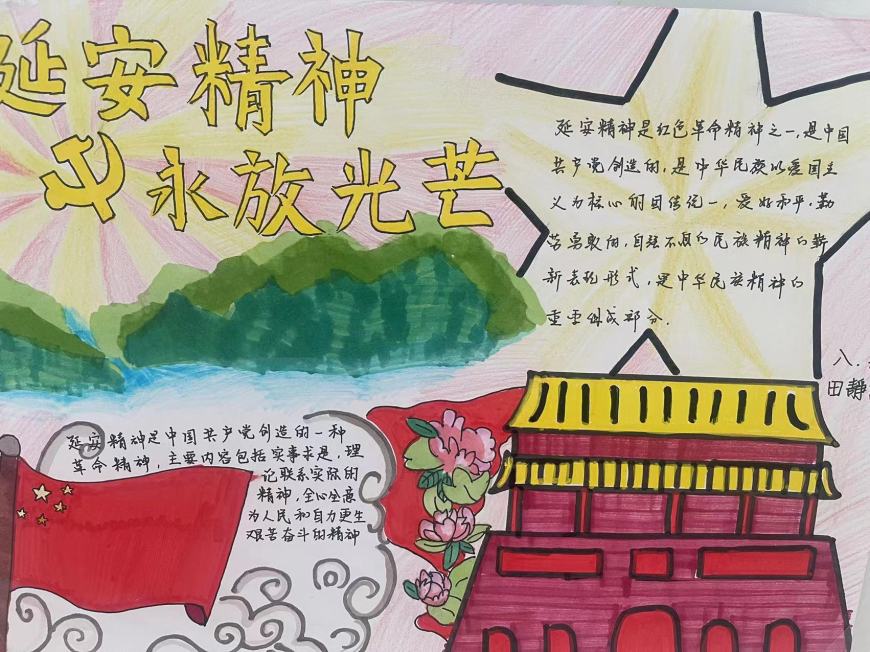 延安精神
永放光芒
延安精神是红色革命精神之一,是中国
共产党创造的,是中华民族以爱国主
义为核心的团结统一,爱好和平,勤
劳勇敢的,自强不息的民族精神的崭
新表现形式,是中华民族精神的
重要组成部分.
八.
田静
延安精神是中国共产党创造的一种
革命精神,主要内容包括实事求是,理
论联系实际的
精神,全心全意
为人民和自力更生
艰苦奋斗的精神